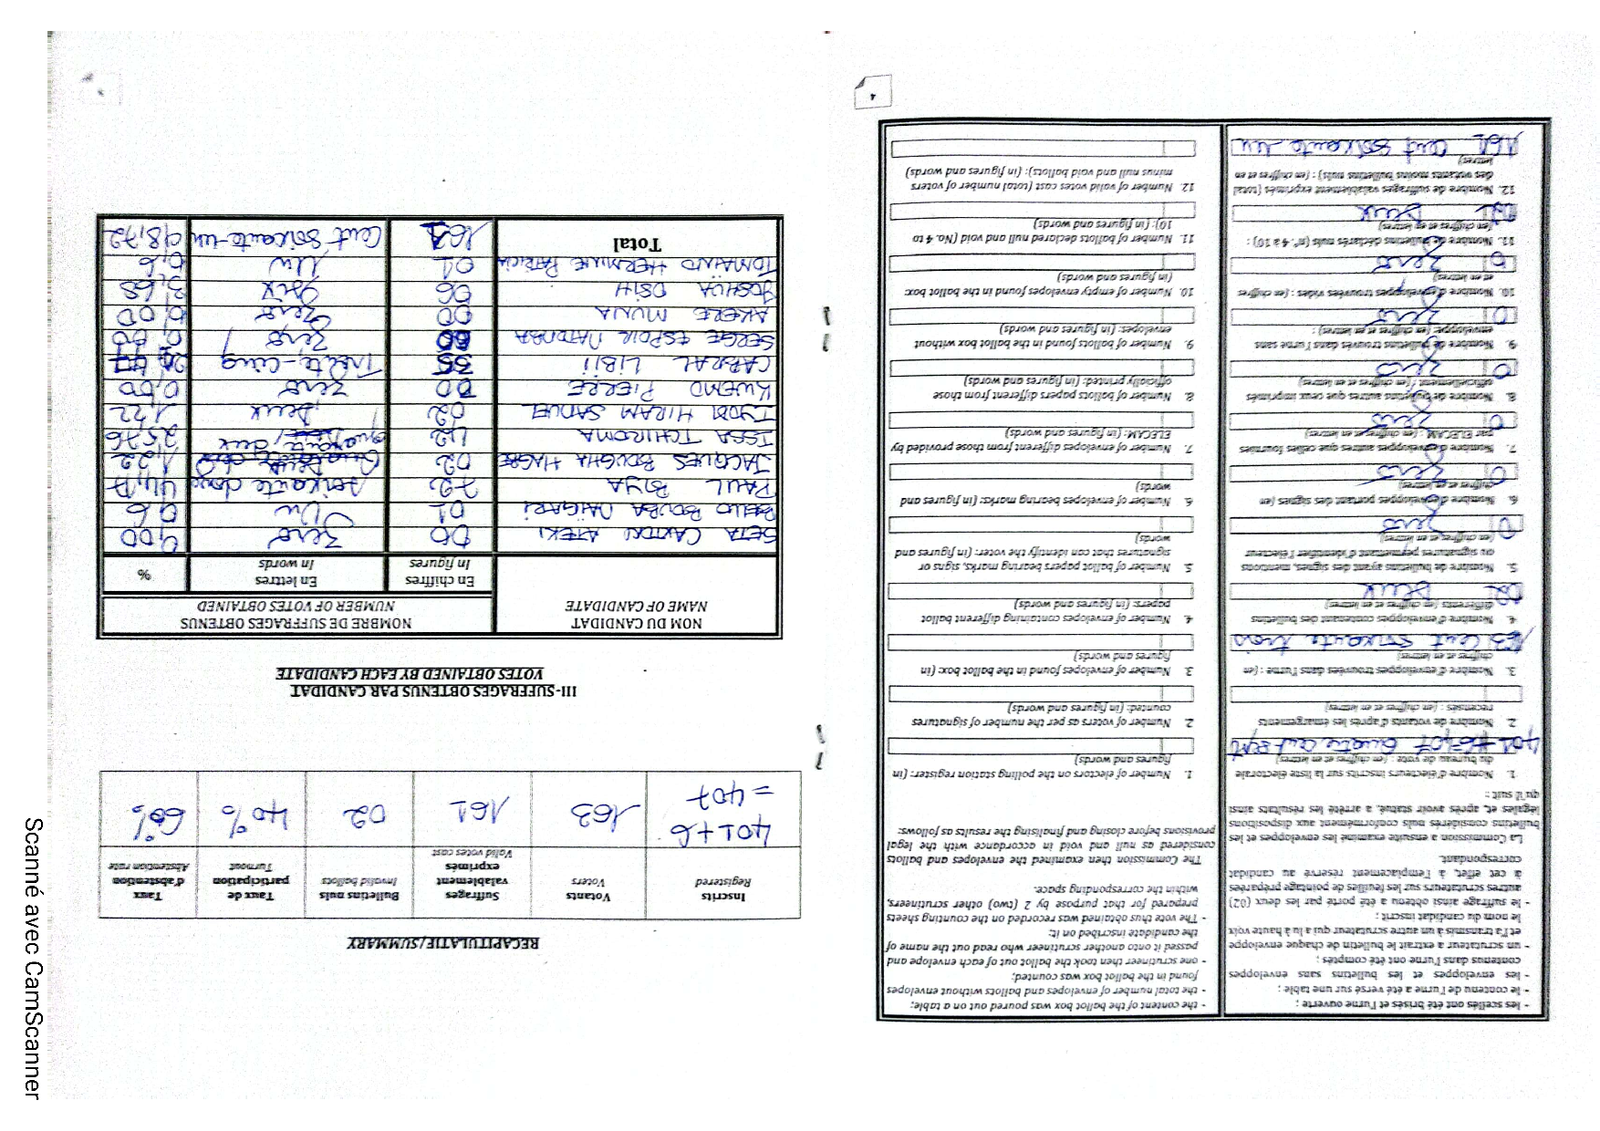 - les scellés ont été brisés et l'urne ouverte ;
- le contenu de l'urne a été versé sur une table ;
- les enveloppes et les bulletins sans enveloppes
contenus dans l'urne ont été comptés ;
- un scrutateur a extrait le bulletin de chaque enveloppe
et l'a transmis à un autre scrutateur qui a lu à haute voix
le nom du candidat inscrit ;
- le suffrage ainsi obtenu a été porté par les deux (02)
autres scrutateurs sur les feuilles de pointage préparées
à cet effet, à l'emplacement réservé au candidat
correspondant.
La Commission a ensuite examiné les enveloppes et les
bulletins considérés nuls conformément aux dispositions
légales et, après avoir statué, a arrêté les résultats ainsi
qu'il suit :
1. Nombre d'électeurs inscrits sur la liste électorale
du bureau de vote : (en chiffres et en lettres)
401 +6=407 Quatre cent sept
2. Nombre de votants d'après les émargements
recensés : (en chiffres et en lettres)
3. Nombre d'enveloppes trouvées dans l'urne : (en
chiffres et en lettres)
163 Cent soixante trois
4. Nombre d'enveloppes contenant des bulletins
différents (en chiffres et en lettres)
02 Deux
5. Nombre de bulletins ayant des signes, mentions
ou signatures permettant d'identifier l'électeur
(en chiffres et en lettres)
0 Zero
6. Nombre d'enveloppes portant des signes (en
chiffres et en lettres)
0 Zero
7. Nombre d'enveloppes autres que celles fournies
par ELECAM : (en chiffres et en lettres)
0 Zero
8. Nombre de bulletins autres que ceux imprimés
officiellement : (en chiffres et en lettres)
0 Zero
9. Nombre de bulletins trouvés dans l'urne sans
enveloppe: (en chiffres et en lettres) :
0 Zero
10. Nombre d'enveloppes trouvées vides : (en chiffres
et en lettres)
0 Zero
11. Nombre de bulletins déclarés nuls (n°. 4 à 10) :
(en chiffres et en lettres)
02 Deux
12. Nombre de suffrages valablement exprimés (total
des votants moins bulletins nuls) : (en chiffres et en
lettres)
161 cent soixante un
- the content of the ballot box was poured out on a table;
- the total number of envelopes and ballots without envelopes
found in the ballot box was counted;
- one scrutineer then took the ballot out of each envelope and
passed it onto another scrutineer who read out the name of
the candidate inscribed on it;
- The vote thus obtained was recorded on the counting sheets
prepared for that purpose by 2 (two) other scrutineers,
within the corresponding space.
The Commission then examined the envelopes and ballots
considered as null and void in accordance with the legal
provisions before closing and finalising the results as follows:
1. Number of electors on the polling station register: (in
figures and words)
2. Number of voters as per the number of signatures
counted: (in figures and words)
3. Number of envelopes found in the ballot box: (in
figures and words)
4. Number of envelopes containing different ballot
papers: (in figures and words)
5. Number of ballot papers bearing marks, signs or
signatures that can identify the voter: (in figures and
words)
6. Number of envelopes bearing marks: (in figures and
words)
7. Number of envelopes different from those provided by
ELECAM: (in figures and words)
8. Number of ballots papers different from those
officially printed: (in figures and words)
9. Number of ballots found in the ballot box without
envelopes: (in figures and words)
10. Number of empty envelopes found in the ballot box:
(in figures and words)
11. Number of ballots declared null and void (No. 4 to
10): (in figures and words)
12. Number of valid votes cast (total number of voters
minus null and void ballots): (in figures and words)
4
RECAPITULATIF/SUMMARY
Inscrits Registered | Votants Voters | Suffrages valablement exprimés Valid votes cast | Bulletins nuls Invalid ballots | Taux de participation Turnout | Taux d'abstention Abstention rate
401+6 =407 | 163 | 161 | 02 | 40% | 60%
III-SUFFRAGES OBTENUS PAR CANDIDAT
VOTES OBTAINED BY EACH CANDIDATE
NOM DU CANDIDAT NAME OF CANDIDATE | NOMBRE DE SUFFRAGES OBTENUS NUMBER OF VOTES OBTAINED
En chiffres In figures | En lettres In words | %
SETA CAXTON ATEKI 00 Zero 0,00
BELLO BOUBA MAIGARI 01 Un 0,6
PAUL BIYA 72 soixante douze 44,17
JACQUES BOUGHA HAGBE 02 Deux 1,22
ISSA TCHIROMA 42 quarante deux 25,76
IYODI HIRAM SAMUEL 02 Deux 1,22
KWEMO PIERRE 00 Zero 0,00
CABRAL LIBII 35 Trente-cinq 21,47
SERGE ESPOIR MATOMBA 00 Zero 0,00
AKERE MUNA 00 Zero 0,00
JOSHUA OSIH 06 Six 3,68
TOMAINO HERMINE PATRICIA 01 Un 0,6
Total 161 Cent soixante-un 98,72
Scanné avec CamScanner